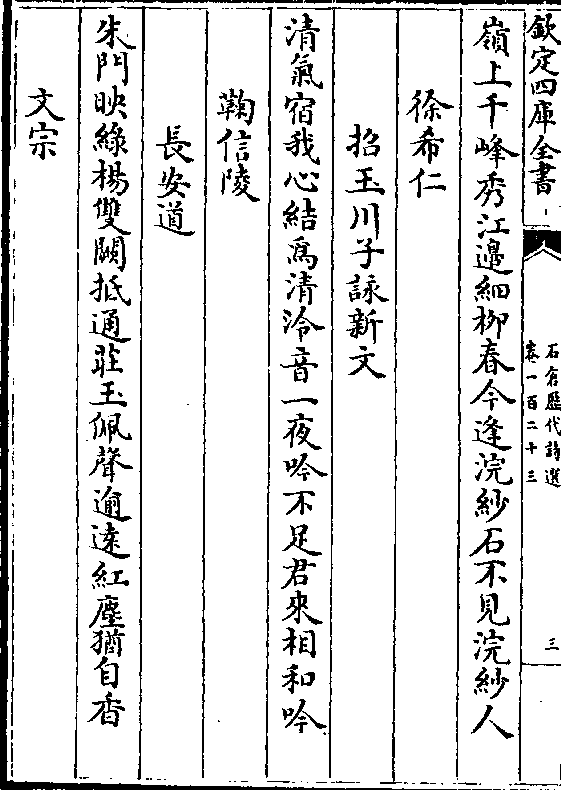 欽定四庫全書
石倉歷代詩選
卷一百二十三
三
嶺上千峰秀江邉細栁春今逢浣紗石不見浣紗人
徐希仁
招玉川子詠新文
清氣宿我心結爲清泠音一夜吟不足君來相和吟
鞠信陵
長安道
朱門映綠楊雙闕抵通莊玉佩聲逾逺紅塵猶自香
文宗